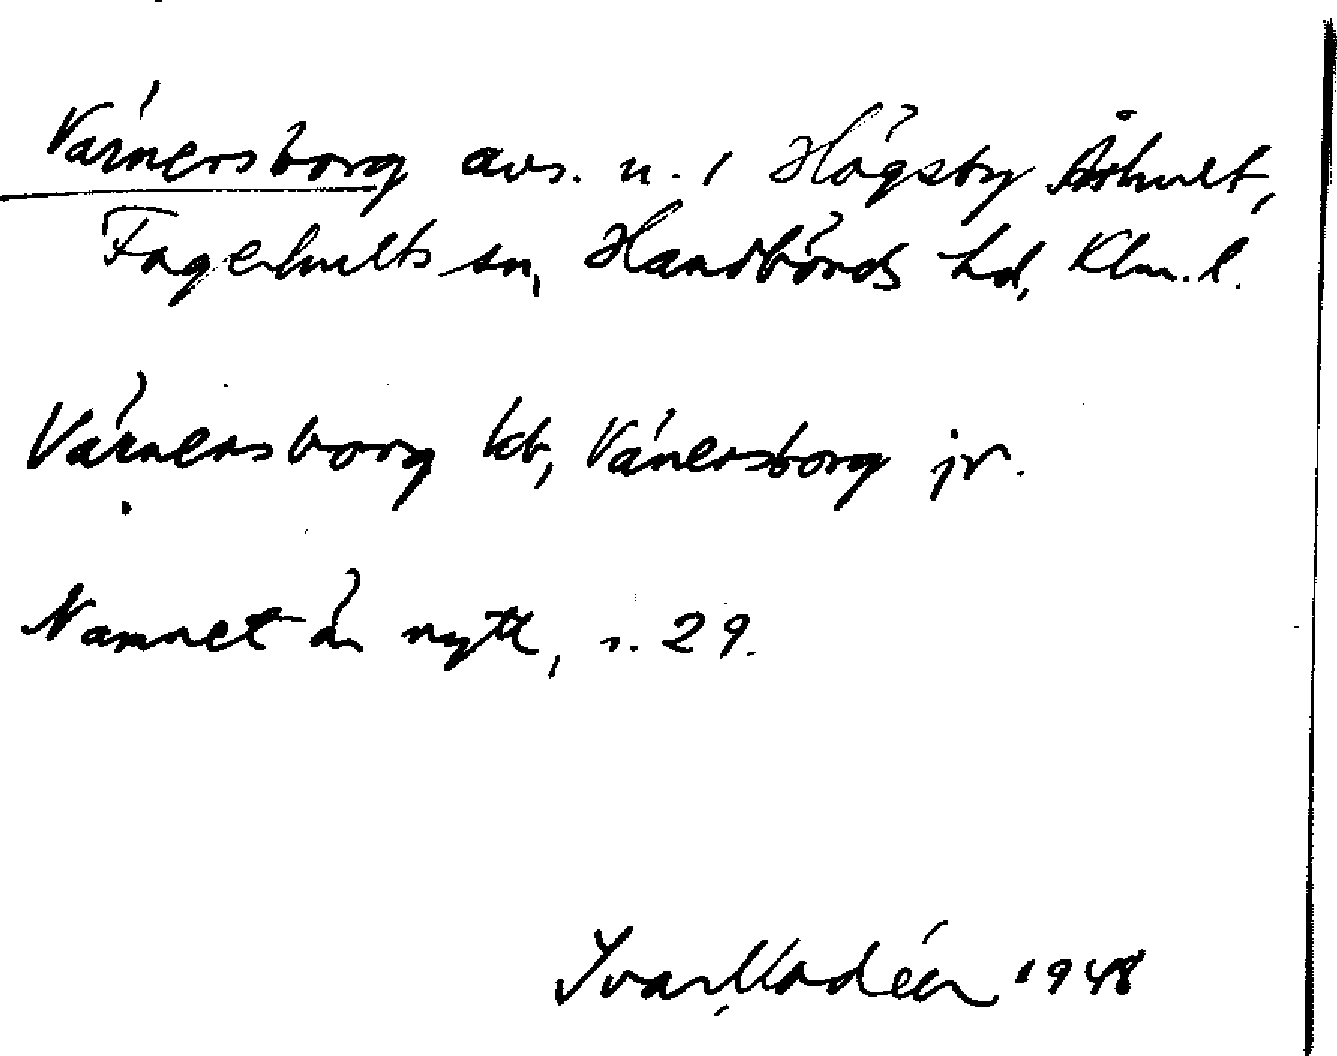 Värnersborg avs. u. i Högsby Århult,
Fagerhults sn, Handbörds hd, Klm. l.
Värnersborg kb, Vänersborg jr.
Namnet är nytt, s. 29.
Ivar Modéer 1948